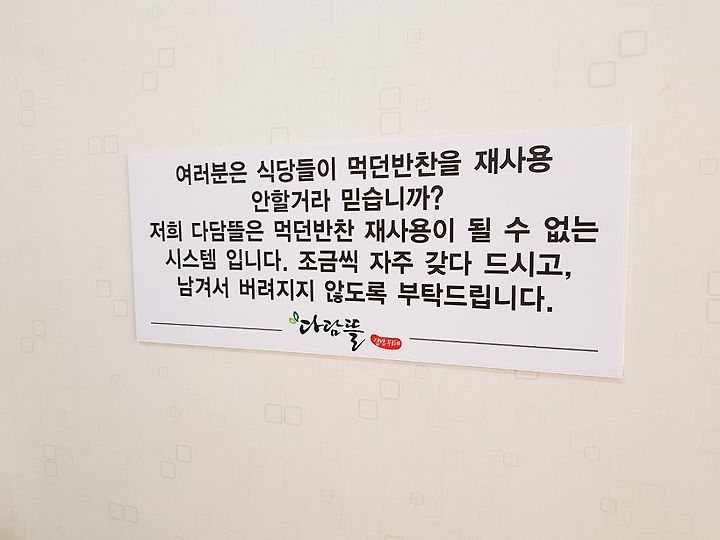 여러분은 식당들이 먹던반찬을 재사용
안할거라 믿습니까?
저희 다담뜰은 먹던반찬 재사용이 될 수 없는
시스템 입니다. 조금씩 자주 갖다 드시고,
남겨서 버려지지 않도록 부탁드립니다.
다담뜰